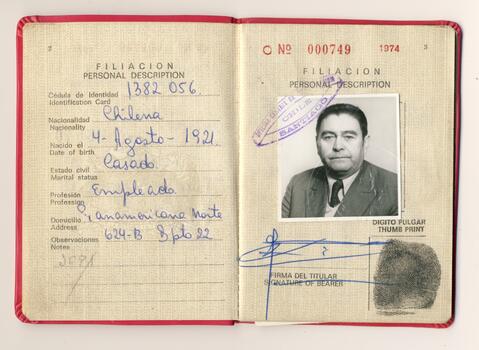 2
FILIACION
PERSONAL DESCRIPTION
Cédula de Identidad 1382 056.
Identification Card
Nacionalidad Chilena
Nacionality
Nacido el 4- Agosto - 1921.
Date of birth
Estado civil Casado.
Marital status
Profesión Empleado.
Profession
Domicilio Panamericana Norte
Address
Observaciones 624-B Dpto 22
Notes
O Nº 000749 1974 3
FILIACION
PERSONAL DESCRIPTION
CHILE
SANTIAGO
DIGITO PULGAR
THUMB PRINT
FIRMA DEL TITULAR
SIGNATURE OF BEARER